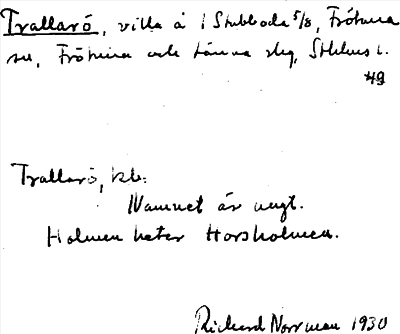 Trallarö, villa å 1 Stubboda 5/8, Frötuna
sn, Frötuna och Länna skg, Sthlms l.
49
Trallarö, kb:
Namnet är ungt.
Holmen heter Horsholmen.
Rickard Norrman 1930